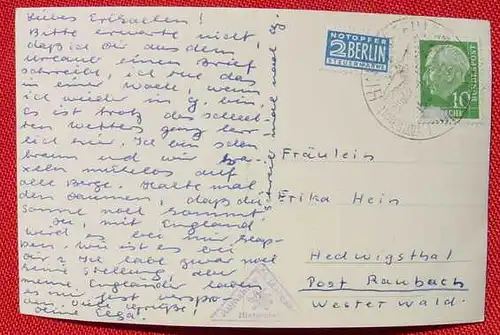 Liebes Erikalein!
Bitte erwarte nicht,
daß ich Dir aus dem
Urlaub einen Brief
schreibe, ich tue das
in einer Woche, wenn
ich wieder in G. bin.
Es ist trotz des schlech-
ten Wetters ganz herr-
lich hier. Ich bin schon
braun und wir kra-
xeln mühelos auf
alle Berge. Halte mal
den Daumen, daß die
Sonne noch kommt.
Du, mit England
wird es bei mir klap-
pen. Wie ist es bei
Dir? Ich habe zwar noch
keine Stellung, aber
meine Engländer haben
es mir fest verspro-
chen. Viele Grüße!
Deine
Schreib mal nach
NOTOPFER
2 BERLIN
STEUERMARKE
DEUTSCHE BUNDESPOST
10
Fräulein
Erika Hein
Hedwigsthal
Post Raubach
Westerwald.